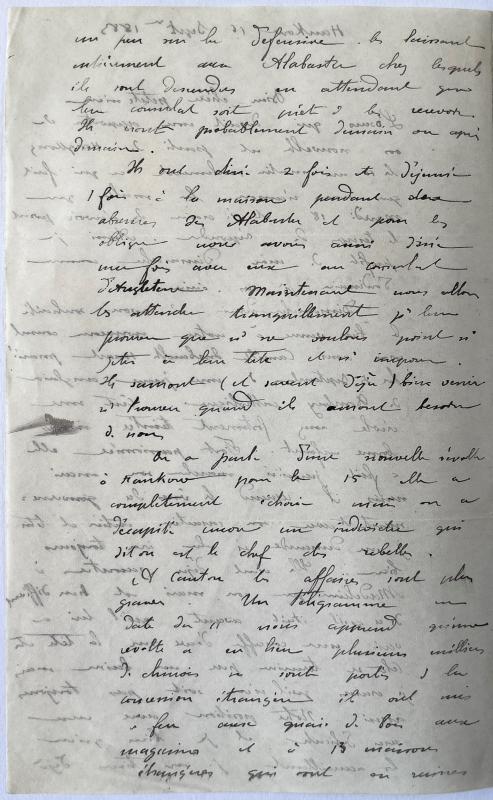 un peu sur la défensive. les laissant
entièrement aux Alabaster chez lesquels
ils sont descendus en attendant que
leur consulat soit prêt à les recevoir
Ils iront probablement demain ou après
demain.
Ils ont diné 2 fois et déjeuné
1 fois à la maison pendant des
absences des Alabaster et pour les
obliger nous avons aussi diné
une fois avec eux au consulat
d'Angleterre. Maintenant nous allons
les attendre tranquillement pr leur
prouver que ns ne voulons point ns
jeter à leur tête et ns imposer.
Ils sauront (et savent déjà) bien venir
ns trouver quand ils auront besoin
de nous.
On a parlé d'une nouvelle révolte
à Hankow pour le 15 elle a
complètement échoué mais on a
décapité encore un individu qui
dit on est le chef des rebelles.
A Canton les affaires sont plus
graves. Un télégramme en
date du 11 nous apprend qu'une
révolte a eu lieu plusieurs milliers
de chinois se sont portés à la
concession étrangère ils ont mis
le feu aux quais de bois aux
magasins et à 13 maisons
étrangères qui sont en ruines